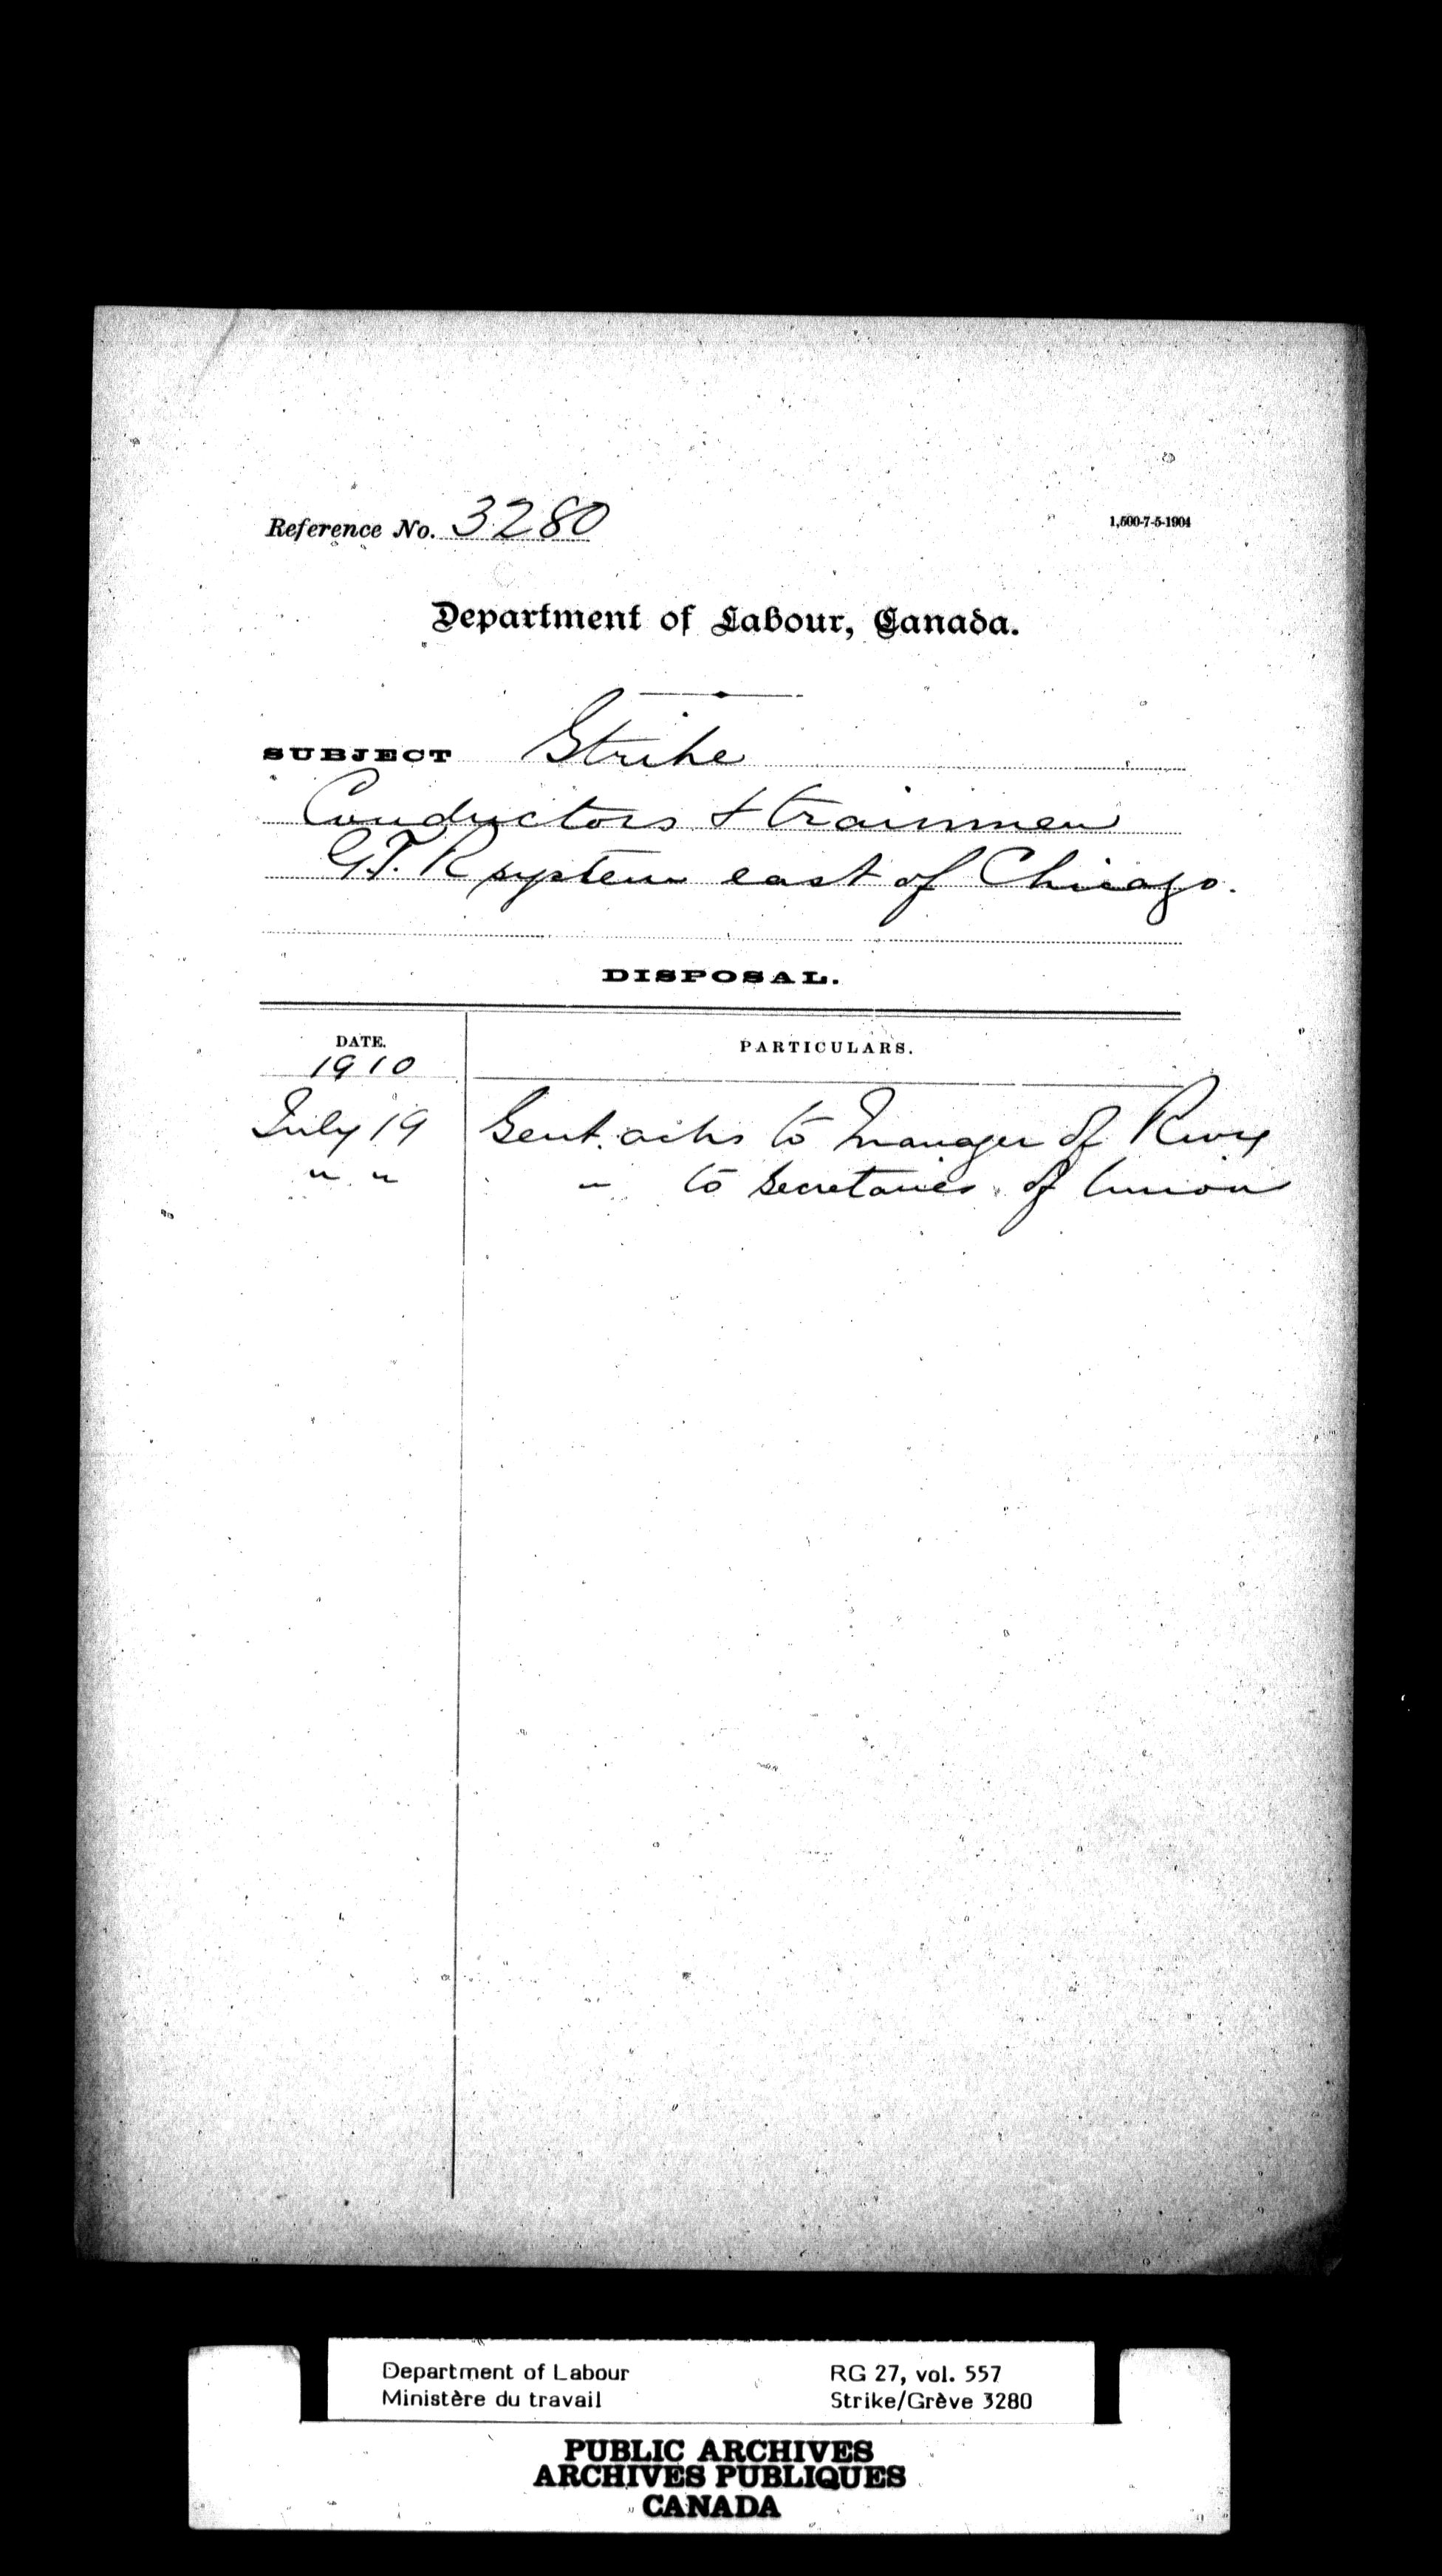 Reference No. 3280
1,500-7-5-1904
Department of Labour, Canada.
SUBJECT Strike
Conductors & trainmen
G.T.R system east of Chicago.
DISPOSAL.
DATE. PARTICULARS.
1910
July 19 Sent to Manager of Rwy
" " " to Secretaries of Union
Department of Labour RG 27, vol. 557
Ministère du travail Strike/Grève 3280
PUBLIC ARCHIVES
ARCHIVES PUBLIQUES
CANADA